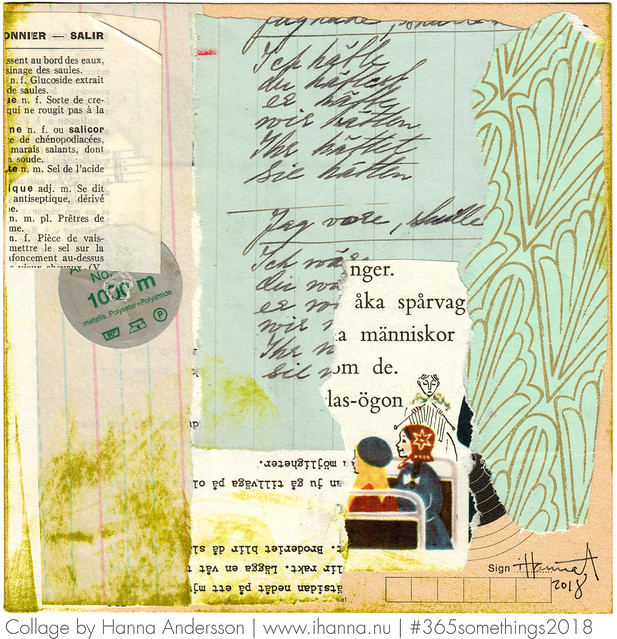 ONNIER — SALIR
ssent au bord des eaux,
sinage des saules.
n. f. Glucoside extrait
de des saules.
ne n. f. Sorte de cre-
qui ne rougit pas à la
ne n. f. ou salicor
re de chénopodiacées,
marais salants, dont
a soude.
te n. m. Sel de l'acide
ique adj. m. Se dit
antiseptique, dérivé
e.
n. m. pl. Prêtres de
me.
n. f. Pièce de vais-
mettre le sel sur la
foncement au-dessus
vieux chevaux. (V.
No.
1000 m
metallis. Polyester+Polyamide
P
Jag hade, skulle
Ich hätte
du hättest
er hätte
wir hätten
Ihr hättet
sie hätten
Jag vore, skulle
Ich wäre
du
er
wir
Ihr
sie
nger.
åka spårvag
a människor
om de.
las-ögon
ätsidan nedåt på ett mj
lir rakt. Lägga en våt
t. Broderiet blir då sl
an ju gå tillväga på ol
a möjligheter.
Sign iHannaA
2018
Collage by Hanna Andersson | www.ihanna.nu | #365somethings2018